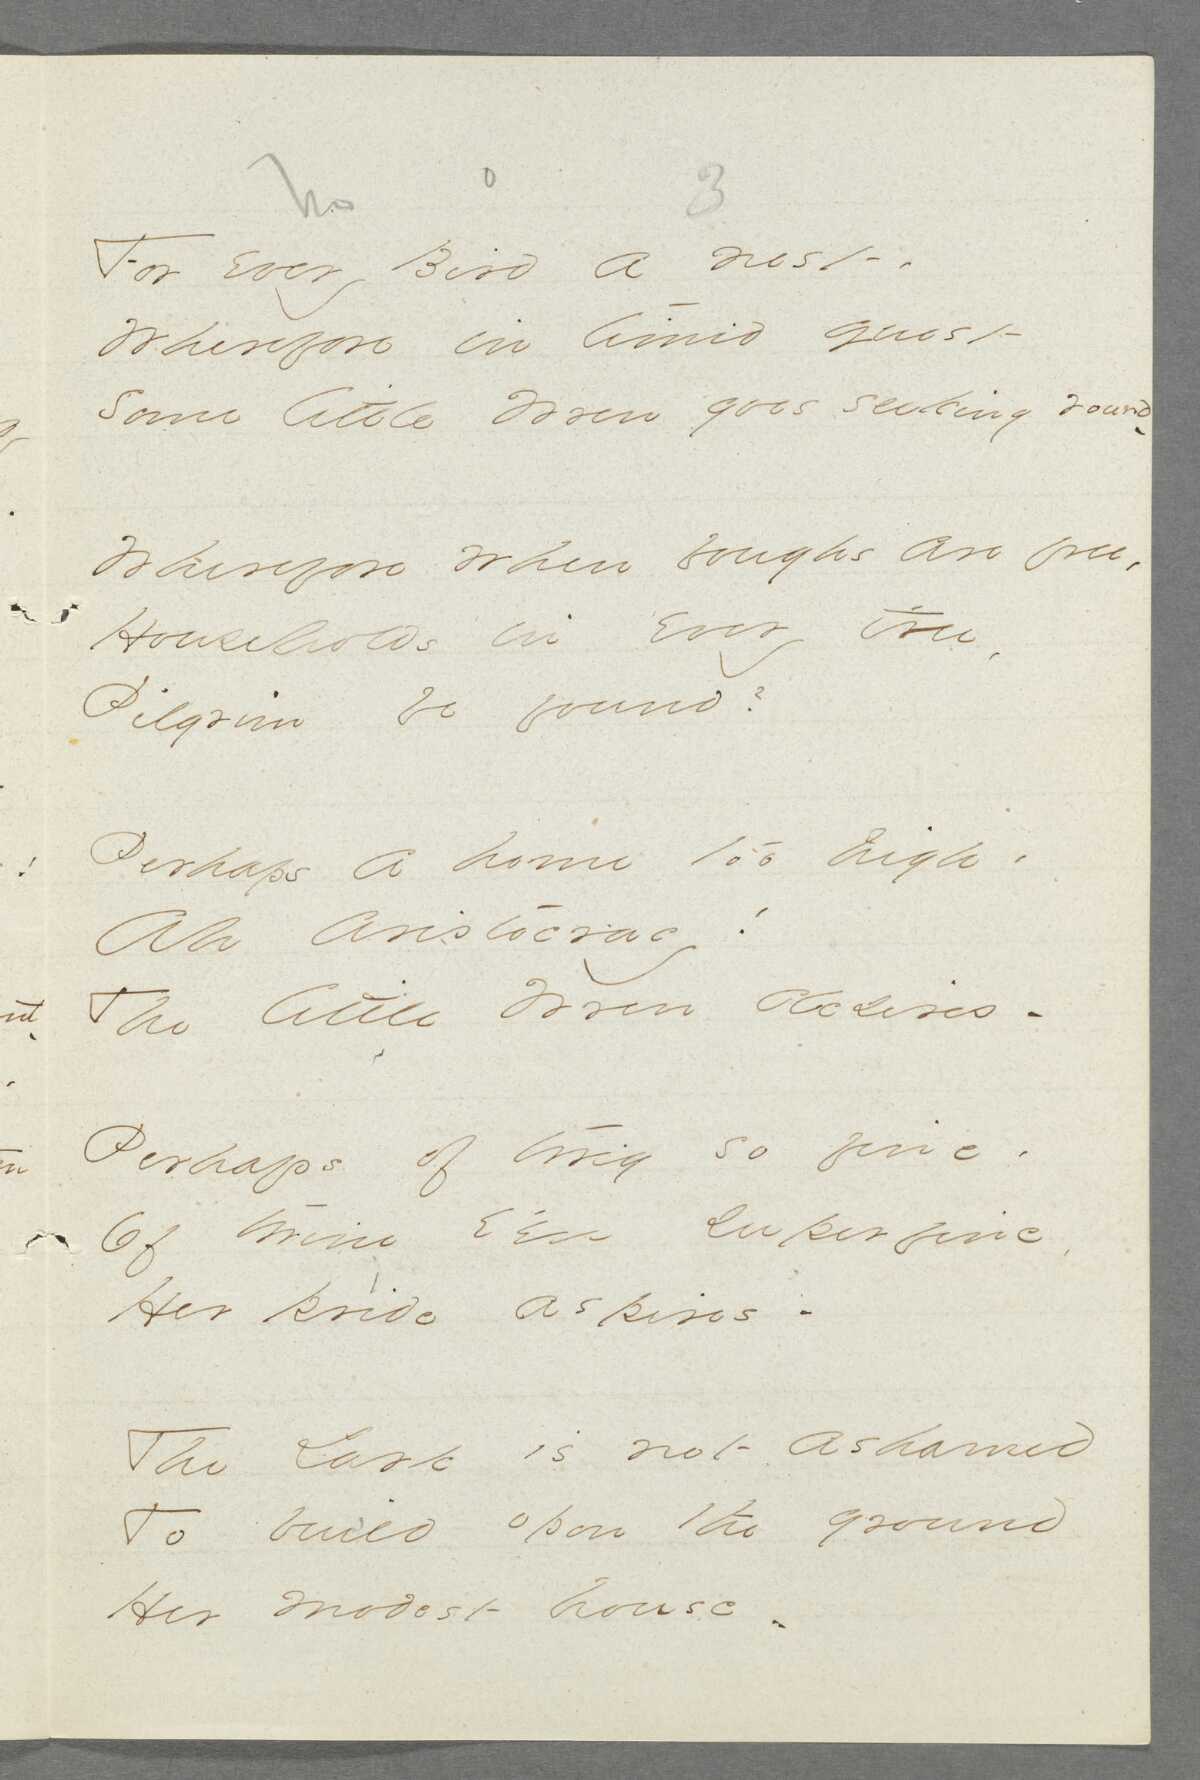 No 3
For Every Bird a nest -
Wherefore in timid quest
Some little Wren goes seeking round -
Wherefore when boughs are free,
Households in Every tree,
Pilgrim be found?
Perhaps a home too high -
Ah Aristocracy!
The little Wren desires -
Perhaps of twig so fine -
Of twine E'en superfine,
Her pride aspires -
The Lark is not ashamed
To build opon the ground
Her modest house -